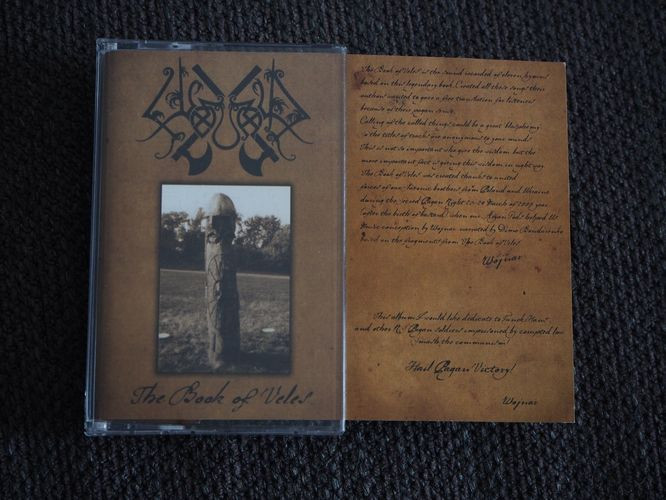 The Book of Veles
The Book of Veles is the sound recorded of eleven hymns
based on this legendary book. I created all these songs their
authors wanted to gave a free translation for listeners
because of their pagan sense.
Calling of the called things could be a great blasphemy
so the titles of tracks are anonymous to your mind.
This is not so important who give the wisdom but the
more important fact is giving this wisdom in right way.
The Book of Veles was created thanks to united
forces of our Slavonic brothers from Poland and Ukraine
during the sacred Pagan Night 20-21 March of 2009 year
(after the birth of bastard) when our Aryan Gods helped us.
Music conception by Wojnar narrated by Dimo
based on the fragments from The Book of Veles.
Wojnar
This album I would like dedicate to
and other N.S Pagan soldiers imprisoned by corrupted law.
Smash the communism!
Hail Pagan Victory!
Wojnar